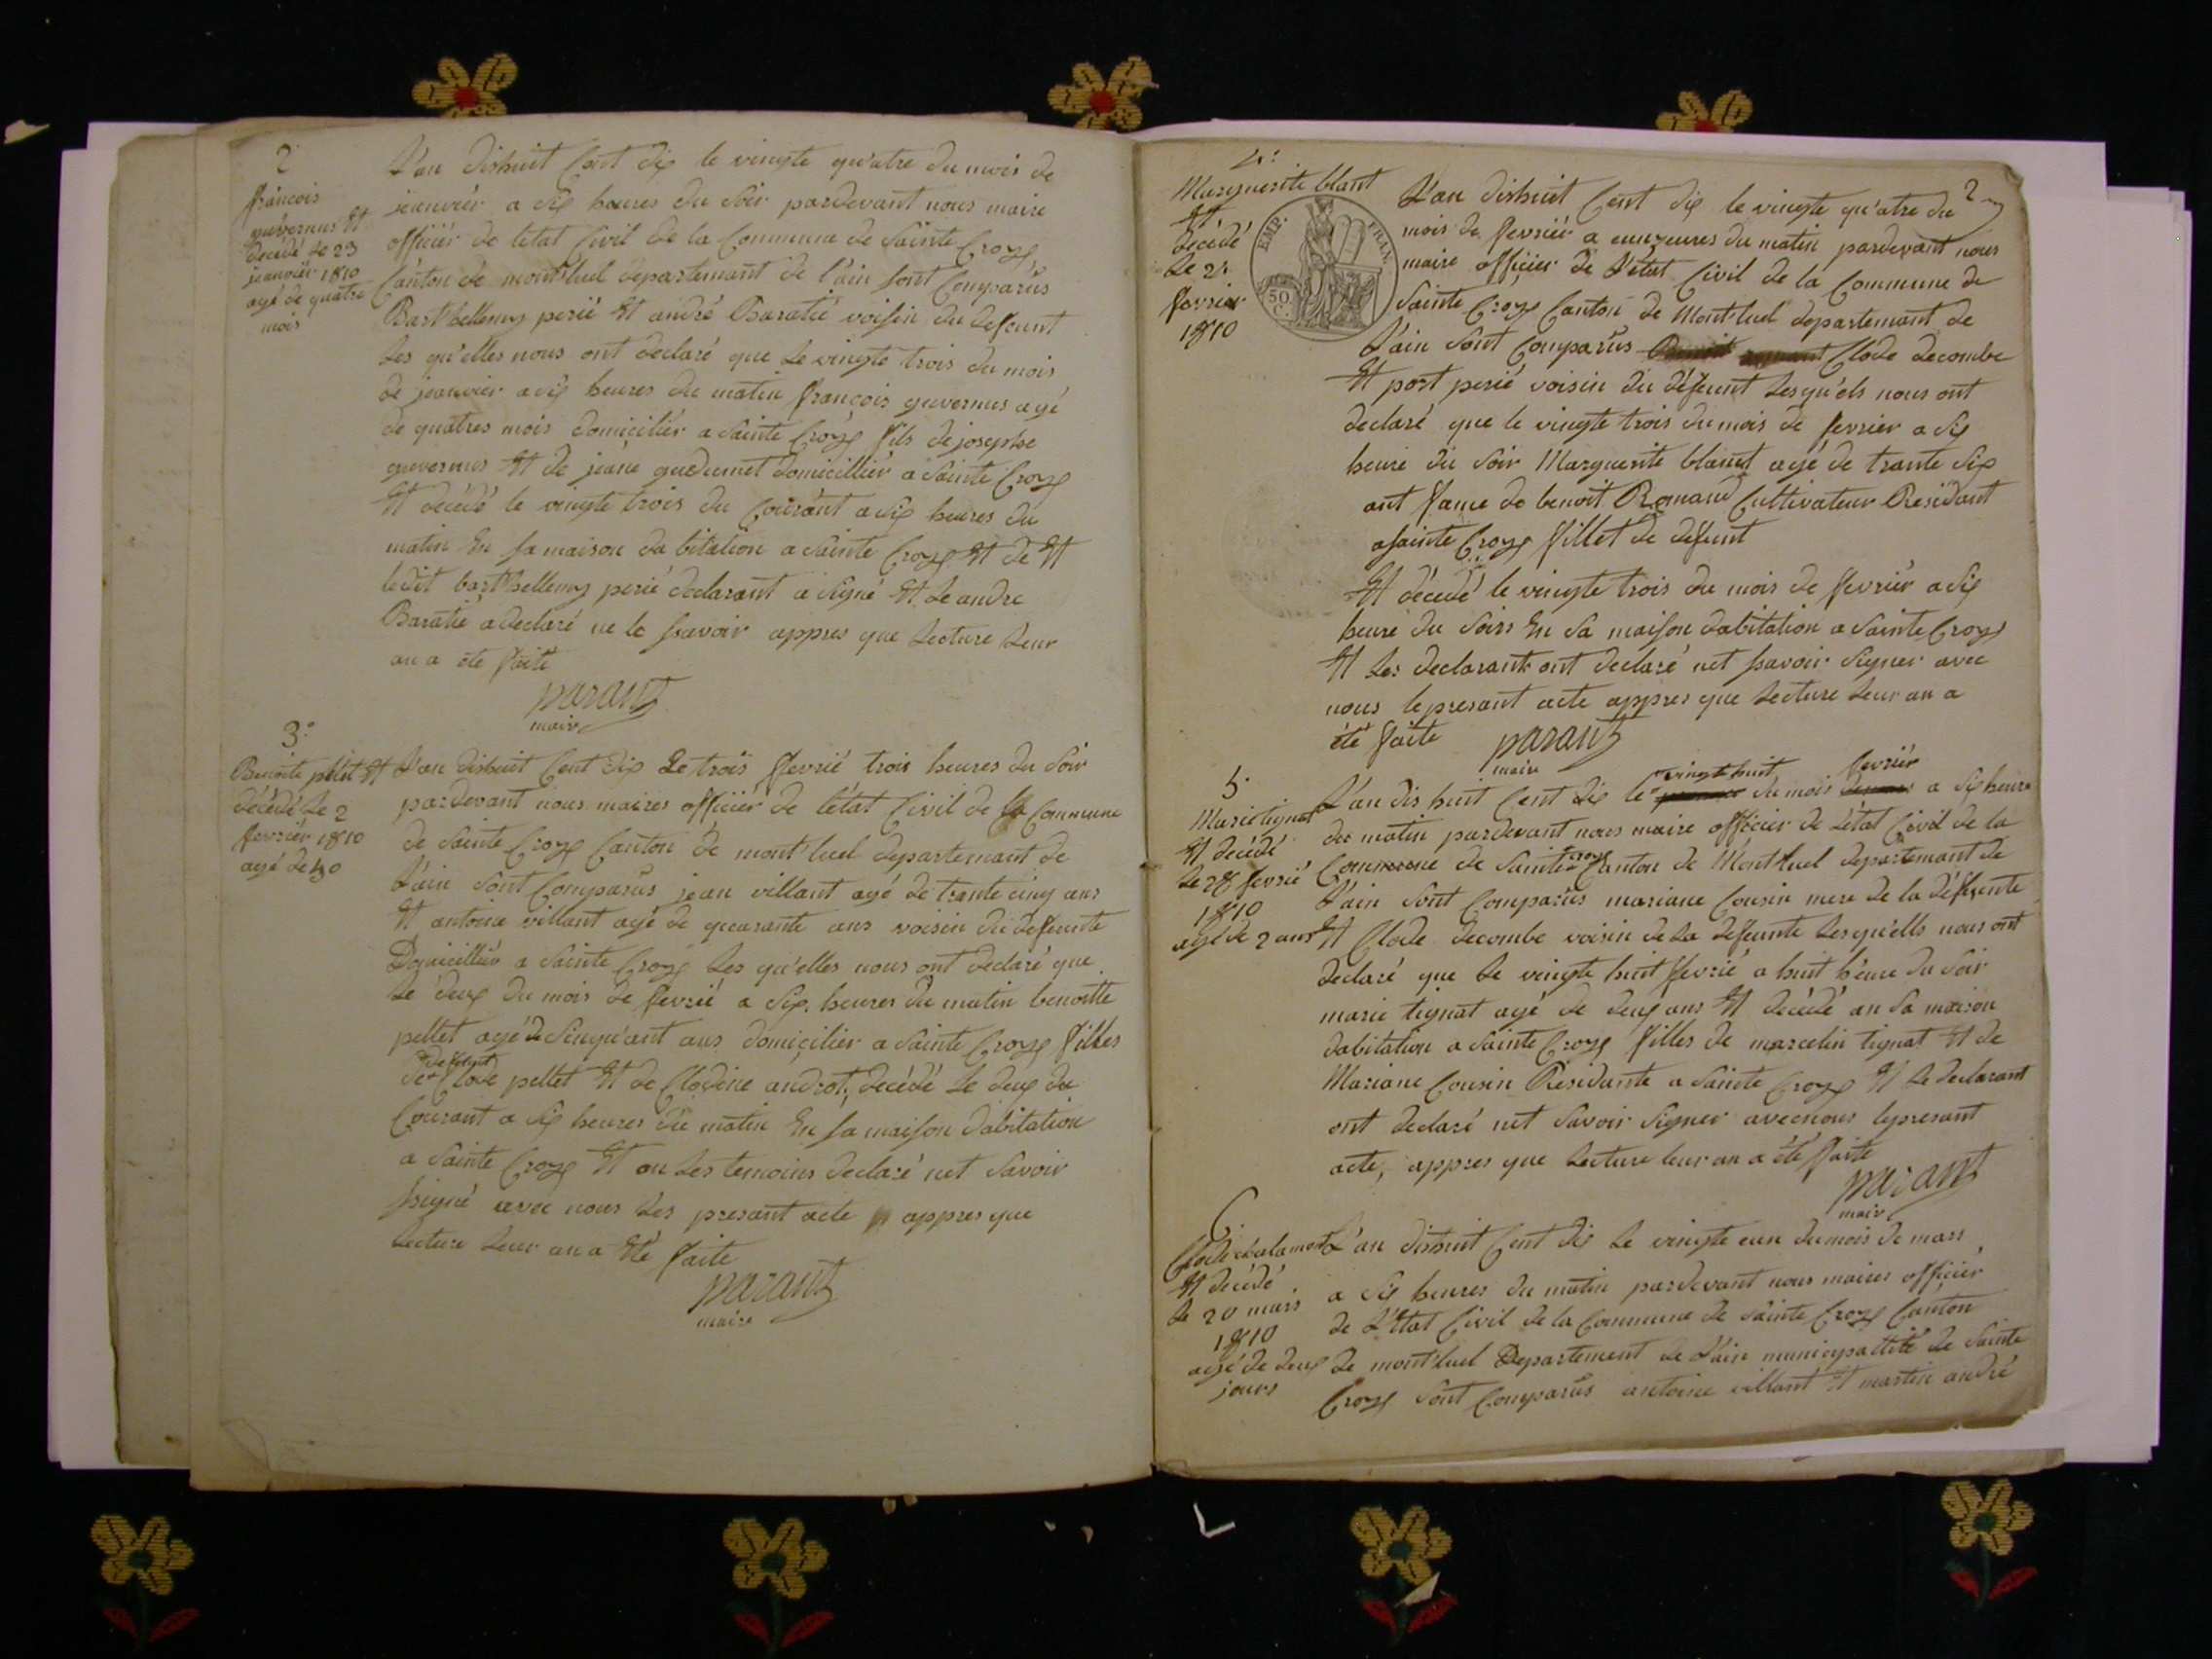 2
françois
guvernus Et
decédé le 23
jeanviér 1810
agé de quatre
mois
L'an dishuit Cent dix le vingte qu'atre du mois de
jeanviér a dix heures du Soir pardevant nous maire
officiér de létat Civil de la Commune de Sainte Croye
Canton de mont'luel departemant de l'ain sont Comparús
Barthellemy perié Et andré Baratié voisin du defeunt
Les qu'elles nous ont declaré que Le vingte trois du mois
de jeanviér a dix heures du matin françois guvernus agé
de quatres mois domicilier a Sainte Croye fils de josephe
guvernus Et de jeane guedumet domicilliér a Sainte Croye
Et decédé le vingte trois du Courant a dix heures du
matin En sa maison dabitation a Sainte Croye Et de Et
ledit barthellemy perié declarant a Signé Et Le andre
Baratié a declaré ne le savoir appres que Lecture Leur
an a été faite
parant
maire
3:
Benoite pelet Et
décédé Le 2
fevriér 1810
agé de 40
L'an dishuit Cent dix Le trois fevrié trois heures du Soir
pardevant nous maires officiér de létat Civil de la Commune
de Sainte Croye Canton de mont'luel departemant de
L'ain Sont Comparús jean villant agé de trante cinq ans
Et antoine villant agé de quarante ans voisin du defeunte
Domicilliér a Sainte Croye Les qu'elles nous ont declaré que
Le deux du mois de fevrié a dix heures du matin benoitte
pellet agé de Sinqu'ant ans domicilier a Sainte Croye filles
defeunt
de Clode pellet Et de Clodine androt, decédé Le deux du
Courant a dix heures du matin En sa maison dabitation
a Sainte Croye Et on Les temoins declaré net Savoir
signé avec nous Les presant acte appres que
Lecture Leur an a Eté faite
parant
maire
4:
Marguerite blant
Et
decédé
Le 24
fevriér
1810
EMP. FRAN.
50 C.
2
L'an dishuit Cent dix le vingte qu'atre du
mois de fevriér a eunzeures du matin pardevant nous
maire officiér de L'état Civil de la Commune de
Sainte Croye Canton de Mont'luel departemant de
L'ain Sont Comparús Clode decombe
Et port perié voisin du défeunt Lesqu'els nous ont
declaré que le vingte trois du mois de fevrier a dix
heure du Soir Marguerite blant agé de trante dix
ant fame de benoit Romand Cultivateur Residant
a Sainte Croye fillet de defeunt
Et décedé le vingte trois du mois de fevriér a dix
heure du Soirs En Sa maison dabitation a Sainte Croye
Et Les declarant ont declaré net savoir Signer avec
nous le presant acte appres que Lecture Leur an a
été faite
parant
maire
5.
Marie tignat
Et decédé
Le 28 fevrié
1810
agé de 2 ans
vingte huit fevriér
L'an dis huit Cent dix le du mois a dix heure
du matin pardevant nous maire officier de L'état Civil de la
croye
Commune de Sainte Canton de Mont'luel departemant de
L'ain Sont Comparús mariane Cousin mere de la défeunte
Et Clode decombe voisin de La defeunte Les qu'ells nous ont
declaré que Le vingte huit fevrié a huit heure du Soir
marie tignat agé de deux ans Et decédé an Sa maison
dabitation a Sainte Croye filles de marcelin tignat Et de
Mariane Cousin Residante a Sainte Croye Et Le declarant
ont declaré net Savoir Signer avec nous le presant
acte, appres que Lecture leur an a été faite
parant
maire
6
Clode chalamont
Et decédé
Le 20 mars
1810
agé de deux
jours
L'an dishuit Cent dix Le vingte eun du mois de mars
a dix heures du matin pardevant nous maires officiér
de L'état Civil de la Commune de Sainte Croye Canton
de mont'luel Departement de L'ain municipallité de Sainte
Croye Sont Comparús antoine villant Et martin andré